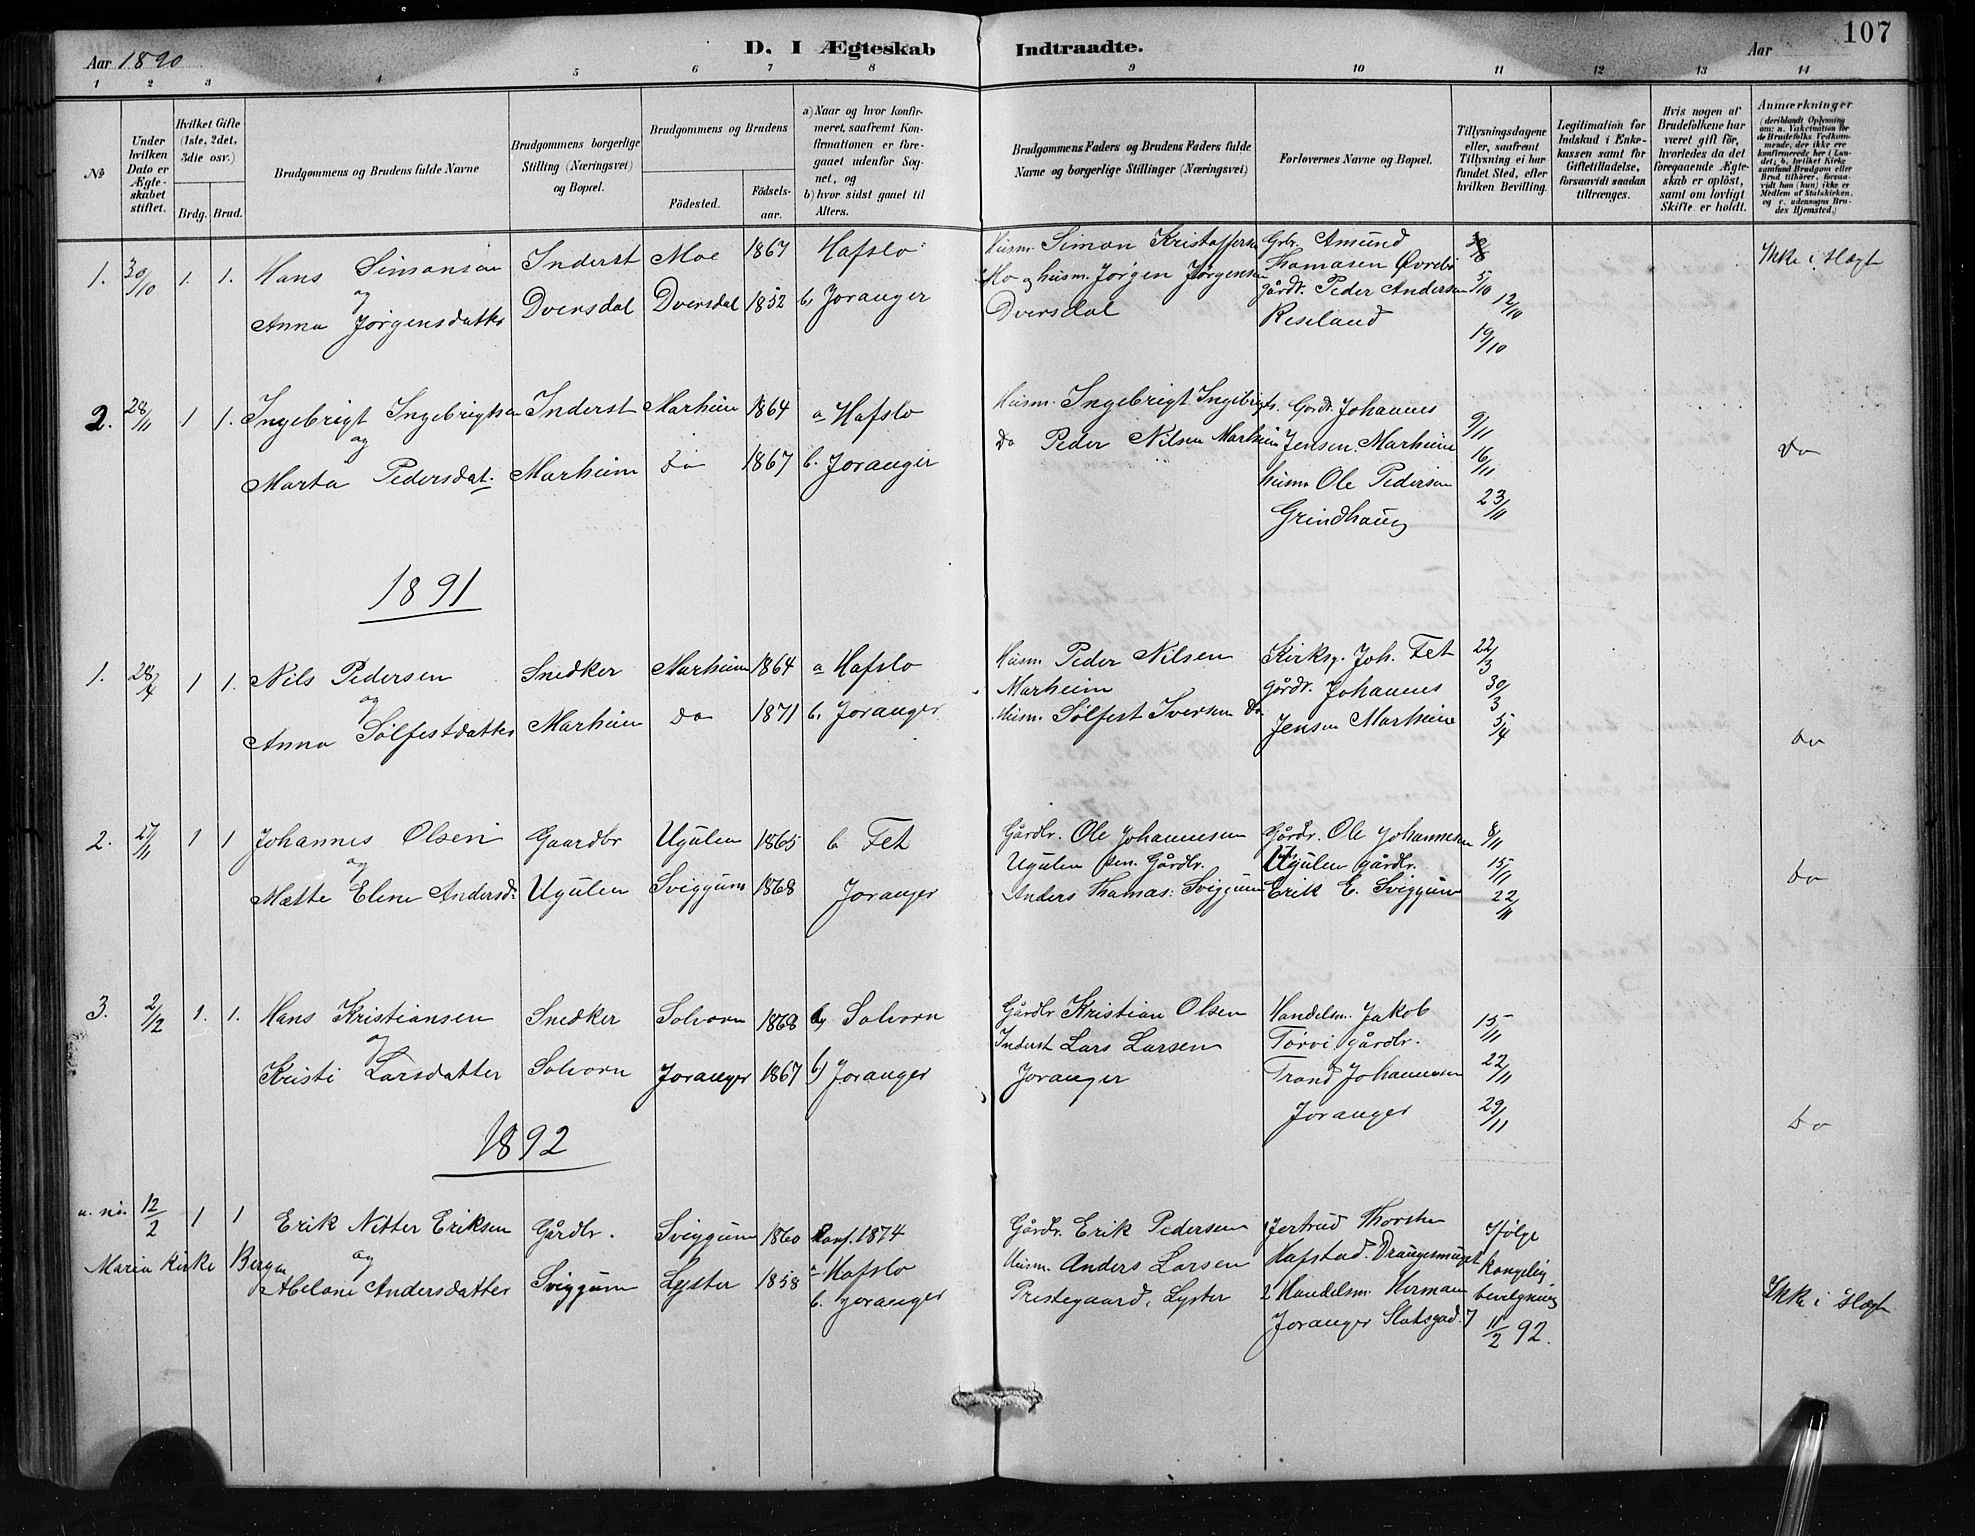 107
Aar 1890 D. I Ægteskab Indtraadte. Aar
1 2 3 4 5 6 7 8 9 10 11 12 13 14
№
Under hvilken Dato er Ægteskabet stiftet.
Hvilket Gifte (1ste, 2det, 3die osv.)
Brdg. Brud.
Brudgommens og Brudens fulde Navne
Brudgommens borgerlige Stilling (Næringsvei) og Bopæl.
Brudgommens og Brudens
Födested. Födselsaar.
a) Naar og hvor konfirmeret, saafremt Konfirmationen er foregaaet udenfor Sognet, og
b) hvor sidst gaaet til Alters.
Brudgommens Faders og Brudens Faders fulde Navne og borgerlige Stillinger (Næringsvei)
Forlovernes Navne og Bopæl.
Tillysningsdagene eller, saafremt Tillysning ei har fundet Sted, efter hvilken Bevilling.
Legitimation for Indskud i Enkekassen samt for Giftetilladelse, forsaavidt saadan tiltrænges.
Hvis nogen af Brudefolkene har været gift før, hvorledes da det foregaaende Ægteskab er oplöst, samt om lovligt Skifte er holdt.
Anmærkninger (deriblandt Oplysning om: a. Vakcination for de Brudefolks Vedkommende, der ikke ere konfirmerede her i Landet; b. hvilket Kirkesamfund Brudgom eller Brud tilhörer, forsaavidt han (hun) ikke er Medlem af Statskirken, og c. udensogns Brudes Hjemsted.)
1. 30/10 1. 1. Hans Simonsen Inderst Moe 1867 Hafslo Husm. Simon Kristoffersen Grbr. Amund Ikke i Slægt
og Mo og husm. Jørgen Jørgensen Thomasen Øvrebø 5/10
Anna Jørgensdatter Dversdal Dversdal 1852 b. Joranger Dversdal gårdbr. Peder Andersen 12/10
Reseland 19/10
2. 28/11 1 1. Ingebrigt Ingebrigtsen Inderst Marheim 1864 a Hafslo Husm. Ingebrigt Ingebrigts. Gårdbr. Johannes 9/11
og Do Peder Nilsen Marheim Jensen Marheim 16/11 Do
Marta Pedersdat. Marheim Do 1867 b. Joranger husm Ole Pedersen 23/11
Grindhaug
1891
1. 28/4 1 1. Nils Pedersen Snedker Marheim 1864 a Hafslo Husm. Peder Nilsen Kirksg. Joh. Fet 22/3
og Marheim gårdbr. Johannes 30/3
Anna Sølfestdatter Marheim Do 1871 b. Joranger Husm. Sølfest Iversen Do Jensen Marheim 5/4 Do
2. 27/11 1 1 Johannes Olsen Gaardbr Ugulen 1865 b. Fet Gårdbr. Ole Johannesen Gårdbr. Ole Johannesen 8/11
og Ugulen sen. Gårdbr. Ugulen gårdbr. 15/11 Do
Mætte Elene Andersd. Ugulen Sviggum 1868 Joranger Anders Thomas: Sviggum Erik E. Sviggum 22/11
3. 2/12 1. 1. Hans Kristiansen Snedker Solvorn 1868 b) Solvorn Gårdbr Kristian Olsen Handelsm. Jakob 15/11
og Inderst Lars Larsen Torvi gårdbr.
Kristi Larsdatter Solvorn Joranger 1867 b) Joranger Joranger Trond Johannesen 22/11
Joranger 29/11 Do
1892
12/2 1 1 Erik Nitter Eriksen Gårdbr. Sviggum 1860 Konf. 1874 Gårdbr. Erik Pedersen 1 Jertrud Thorsten Ifølge
Maria Kirke Bergen og a Hafslo Husm. Anders Larsen Hafstad. kongelig
Helane Andersdatter Sviggum Lyster 1858 b. Joranger Prestegaard, Lyster 2 Handelsm. Herman bevilgning Ikke i Slægt
Joranger Slotsgad. 7 11/2 92.